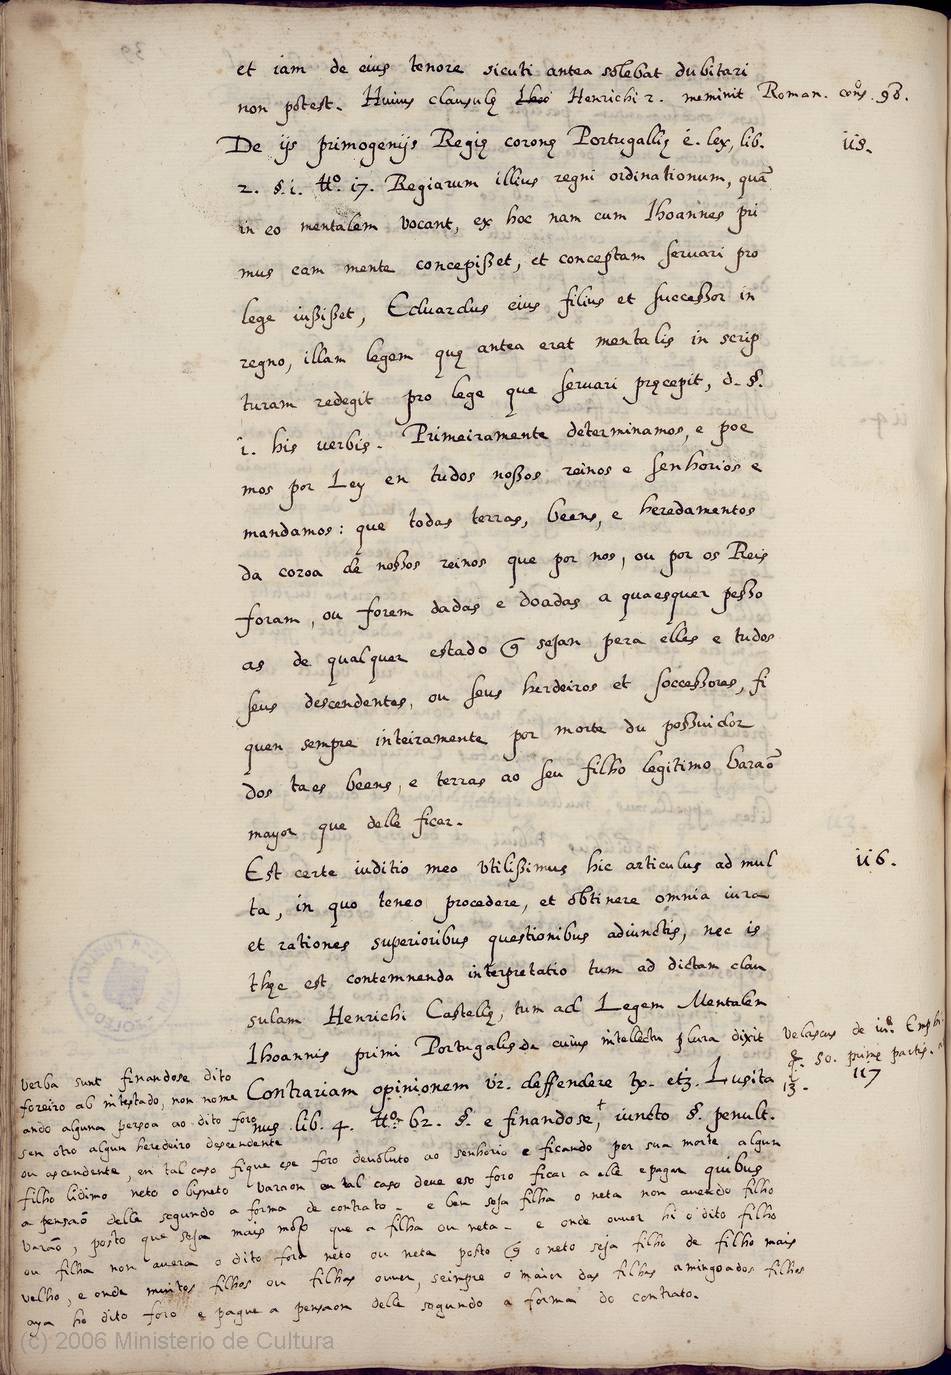 et iam de eius tenore sicuti antea solebat dubitari
non potest. Huius clausulę Henrichi 2. meminit Roman. cons. 98.
De ijs primogenijs Regię coronę Portugallię ē. lex, lib.
115.
2. §. i. tto. 17. Regiarum illius regni ordinationum, quā
in eo mentalem vocant, ex hoc nam cum Ihoannes pri
mus eam mente concepißet, et conceptam servari pro
lege iußißet, Eduardus eius filius et succeßor in
regno, illam legem quę antea erat mentalis in scrip
turam redegit pro lege que servari pręcepit, d. §.
i. his verbis. Primeiramente determinamos, e poe
mos por Ley en tudos noßos reinos e senhorios e
mandamos: que todas terras, beens, e heredamentos
da coroa de noßos reinos que por nos, ou por os Reis
foram, ou forem dadas e doadas a quaesquer peßo
as de qualquer estado q̃ sejan pera elles e tudos
seus descendentes, ou seus herdeiros et soccessores, fi
quen sempre inteiramente por morte du poßuidor
dos taes beens, e terras ao seu filho legitimo baraõ
mayor que delle ficar.
Est certe iuditio meo utilißimus hic articulus ad mul
116.
ta, in quo teneo procedere, et obtinere omnia iura
et rationes superioribus questionibus adiunctis, nec is
thęc est contemnenda interpretatio tum ad dictam clau
sulam Henrichi Castellę, tum ad Legem Mentalem
Ihoannis primi Portugalis de cuius intellectu plura dixit
Velascus de iur. Emphi
q. 50. primę partis. n
13.
117
Contrariam opinionem vr. deffendere tx. etz. Lusita
nus lib. 4. tto. 62. §. e finandose, iuncto §. penult.
quibus
verba sunt finandose dito
foreiro ab intestado, non nome
ando alguna persoa ao dito foro
sem otro algun heredeiro descendente
ou ascendente, en tal caso fique ese foro devoluto ao senhorio e ficando por sua morte algun
filho lidimo neto o bisneto varaon en tal caso deve eso foro ficar a elle e pagar
a pensaõ delle segundo a forma de contrato. e ben seja filha o neta non avendo filho
varaõ, posto que seja mais moço que a filha ou neta. e onde ouver hi o dito filho
ou filha non avera o dito foro neto ou neta posto q̃ o neto seja filho de filho mais
velho, e onde muitos filhos ou filhas ouver, seimpre o maior das filhas amingoados filhos
aya ho dito foro e pague a pensaon delle segundo a forma do contrato.
(c) 2006 Ministerio de Cultura